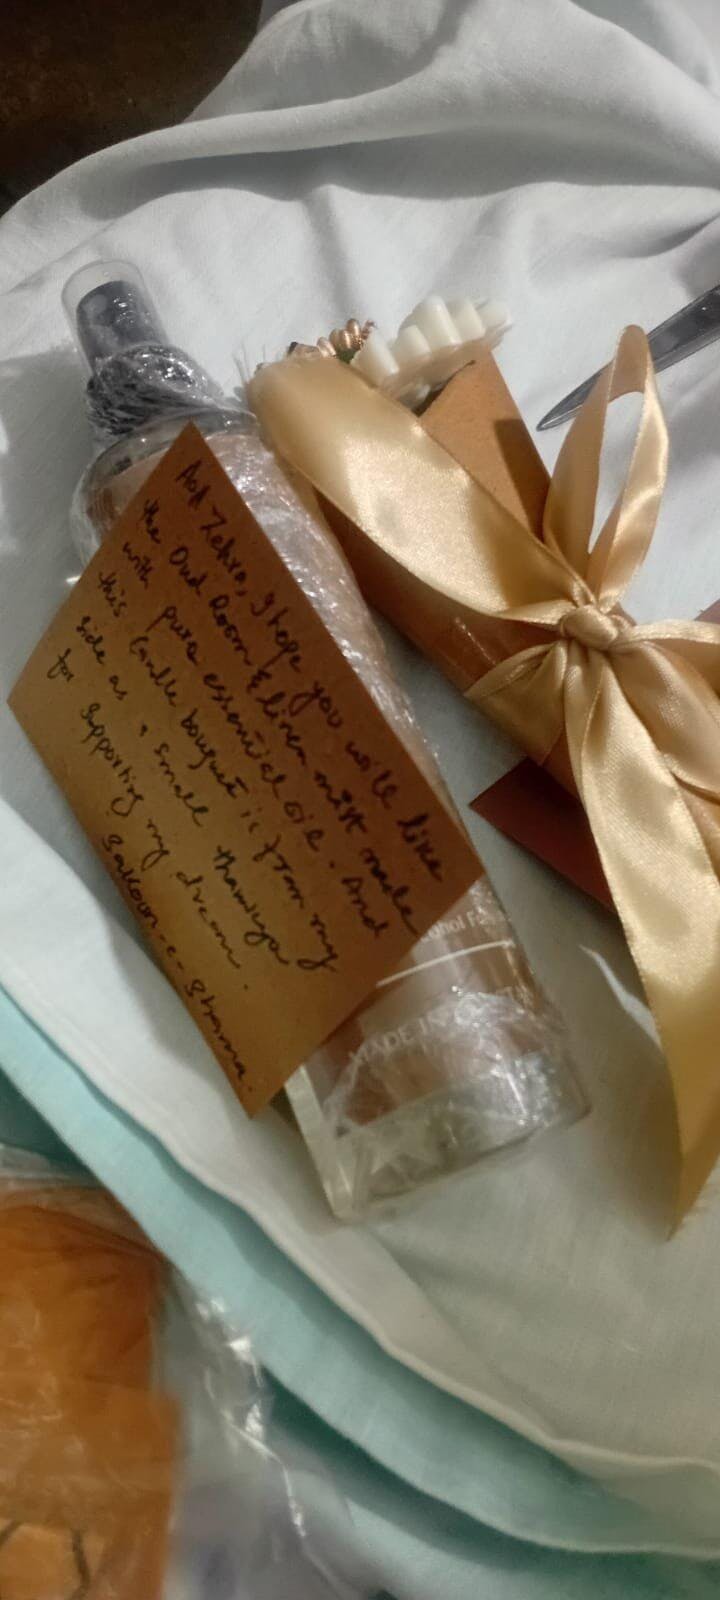 AoA Zehra, I hope you will like
the Oud Room & linen mist made
with pure essential oil. And
this Candle bouquet is from my
side as a small thankyou
for supporting my dream.
Sakoon-e-Shama.
ohol F
MADE IN